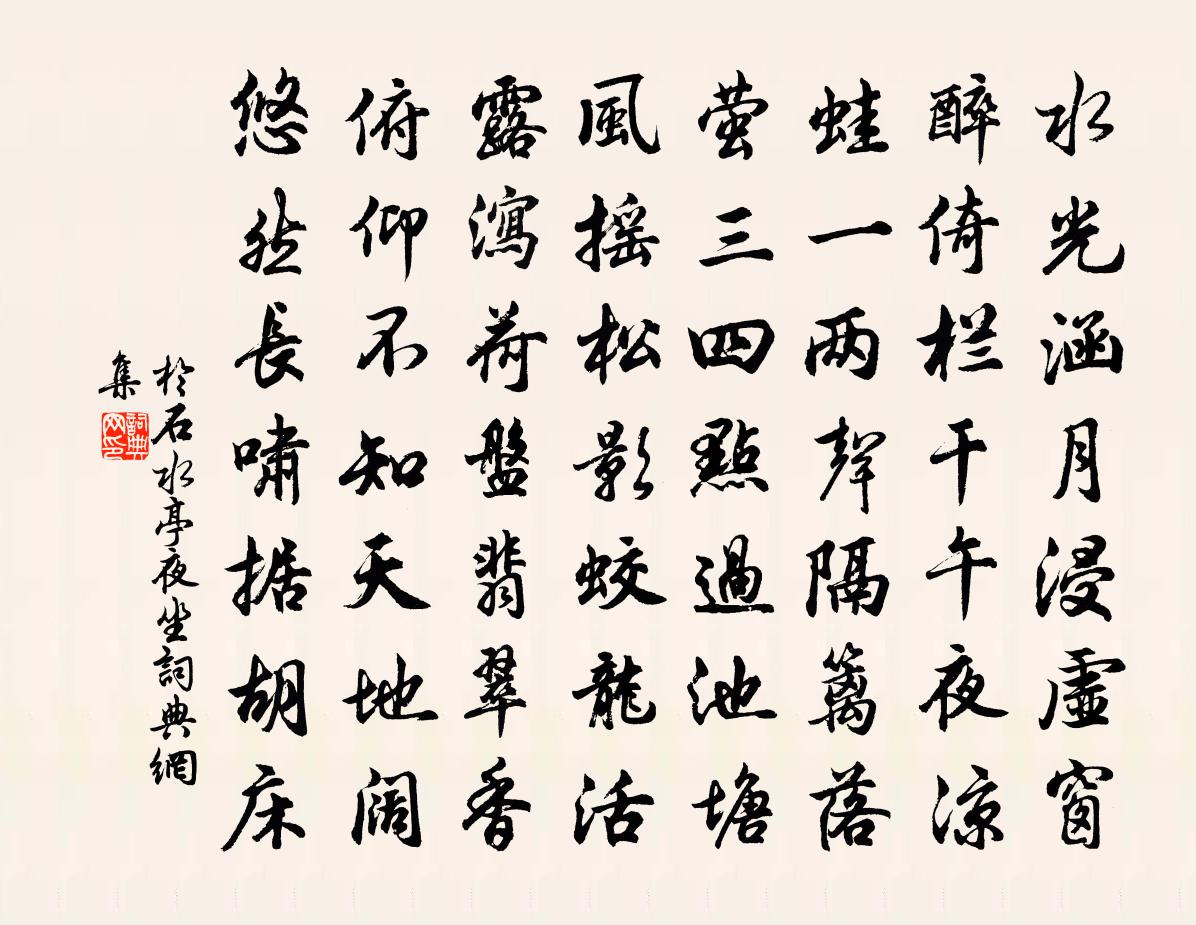 水光涵月浸虛窗
醉倚栏干午夜凉
蛙一两聲隔篱落
萤三四點過池塘
風摇松影蛟龍活
露瀉荷盤翡翠香
俯仰不知天地阔
悠然長啸据胡床
於石水亭夜坐詞典網
集
詞典
网印